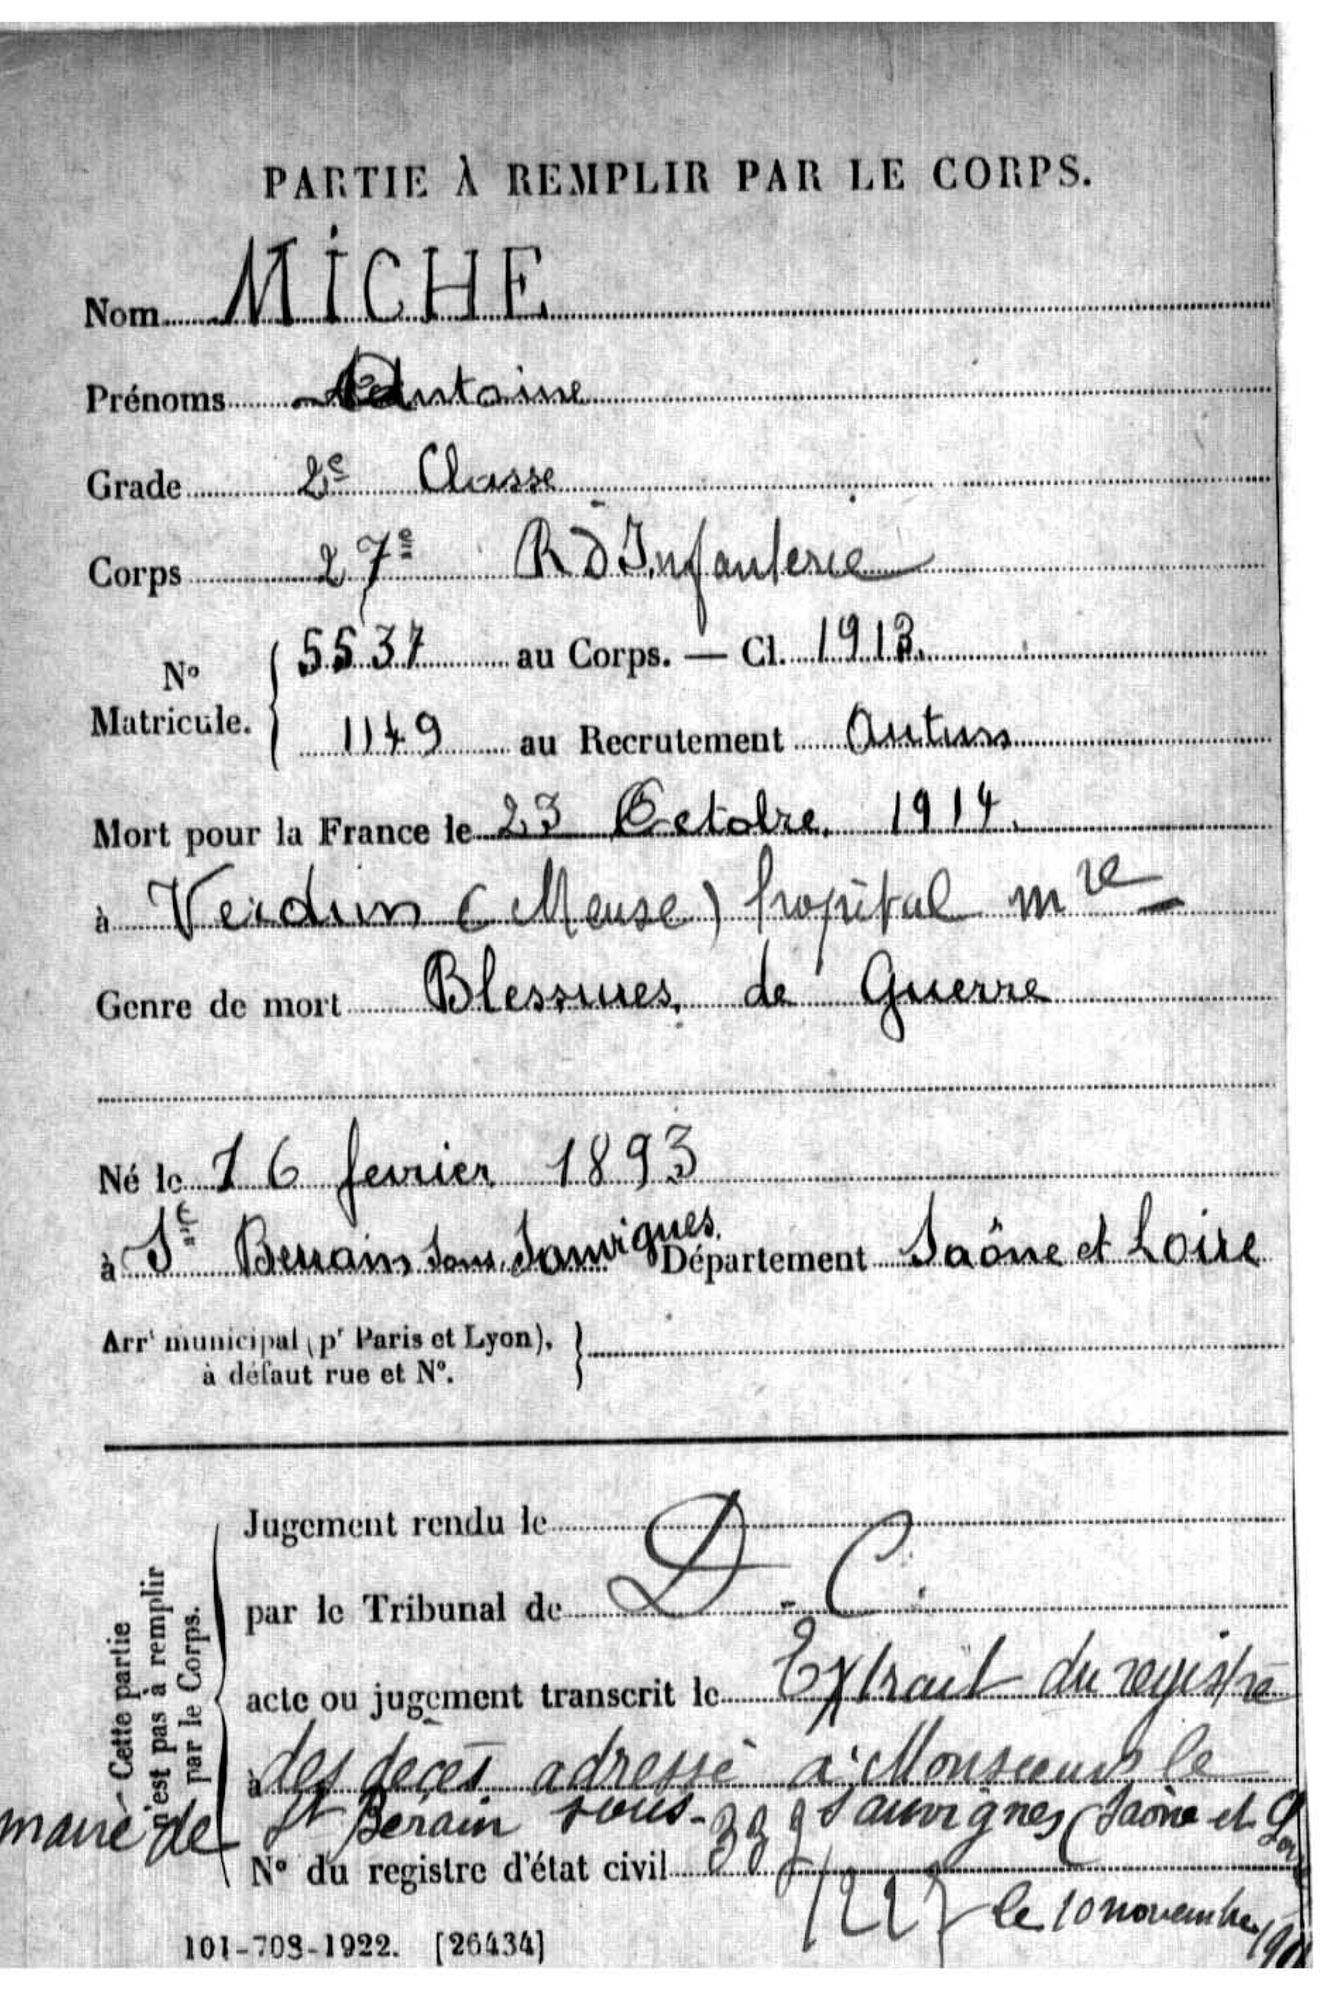 PARTIE À REMPLIR PAR LE CORPS.
Nom MICHE
Prénoms Antoine
Grade 2e Classe
Corps 27e R d'Infanterie
N° Matricule. 5537 au Corps. — Cl. 1913.
1149 au Recrutement Autun
Mort pour la France le 23 Octobre 1914.
à Verdun (Meuse) hopital mre
Genre de mort Blessures de Guerre
Né le 16 fevrier 1893
à St Berrain sous Sanvignes. Département Saône et Loire
Arrt municipal (pr Paris et Lyon),
à défaut rue et N°.
Cette partie
n'est pas à remplir
par le Corps.
Jugement rendu le
par le Tribunal de D.C.
acte ou jugement transcrit le Extrait du registre
à des décès adressé à Monsieur le
maire de St Berain sous-Sanvignes (Saône et Loire
N° du registre d'état civil 339
le 10 novembre
101-708-1922. [26434]